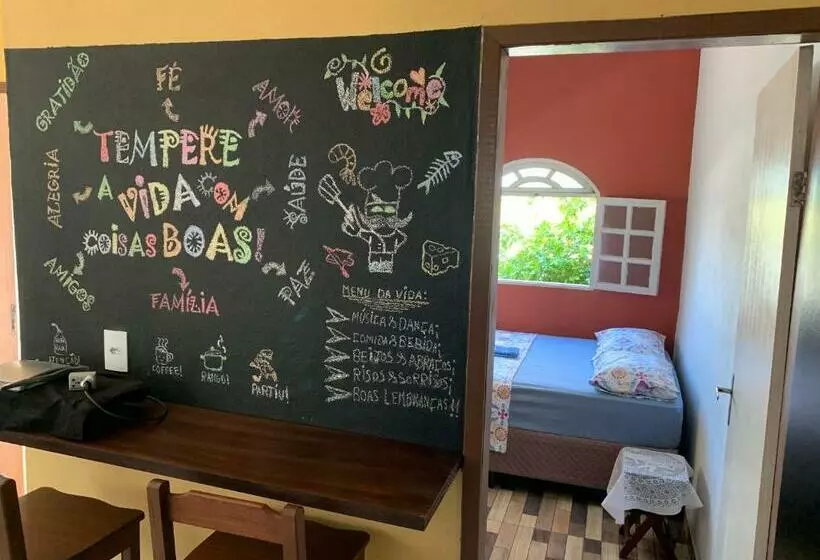 GRATIDÃO
FÉ
AMOR
ALEGRIA
TEMPERE
A VIDA COM
COISAS BOAS!
SAÚDE
AMIGOS
FAMÍLIA
PAZ
Welcome
MENU DA VIDA:
MÚSICA & DANÇA;
COMIDA & BEBIDA;
BEIJOS & ABRAÇOS;
RISOS & SORRISOS;
BOAS LEMBRANÇAS!!
COFFEE!
RANGO!
PARTIU!